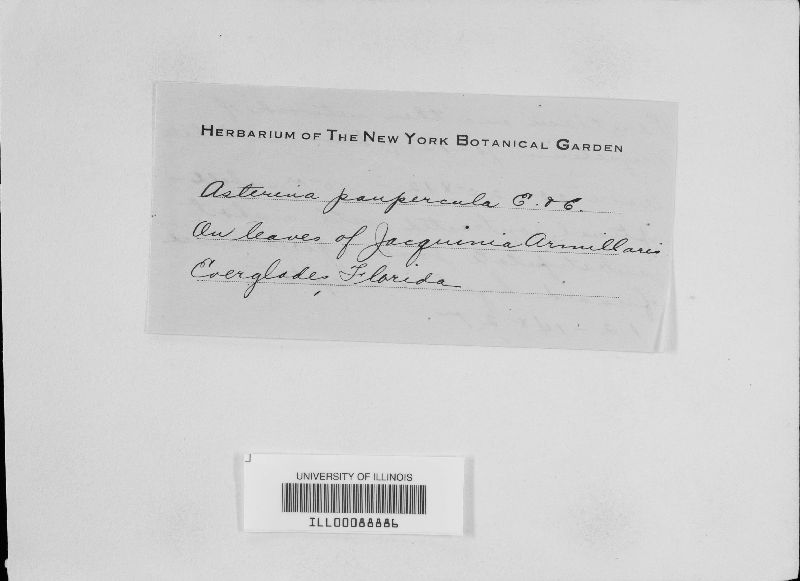 HERBARIUM OF THE NEW YORK BOTANICAL GARDEN
Asterina paupercula E. & E.
On leaves of Jacquinia Armillaris
Everglades, Florida
UNIVERSITY OF ILLINOIS
ILL00088886